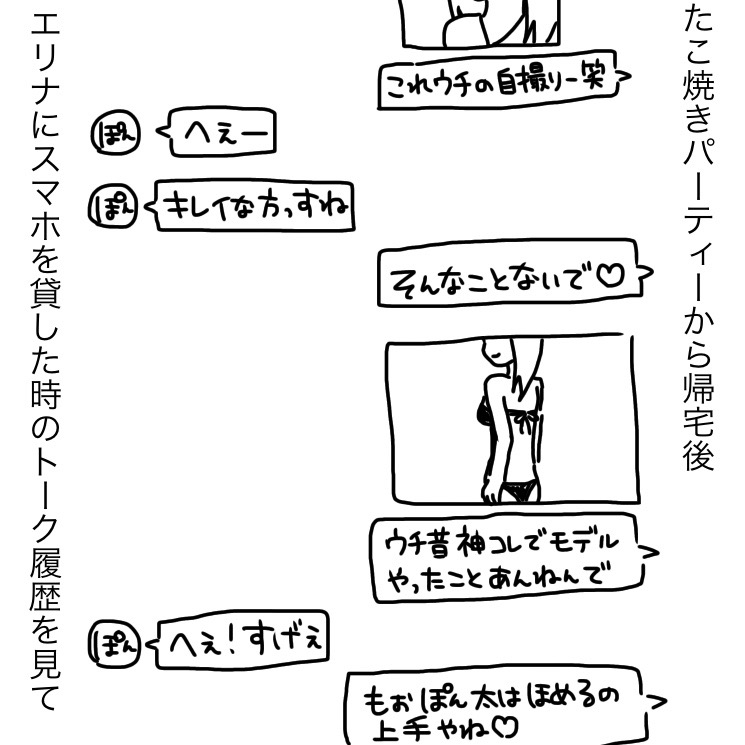 たこ焼きパーティーから帰宅後
これウチの自撮りー笑
ぽん
へぇー
ぽん
キレイな方っすね
そんなことないで♡
ウチ昔神コレでモデル
やったことあんねんで
ぽん
へぇ！すげぇ
もぉぽん太はほめるの
上手やね♡
エリナにスマホを貸した時のトーク履歴を見て